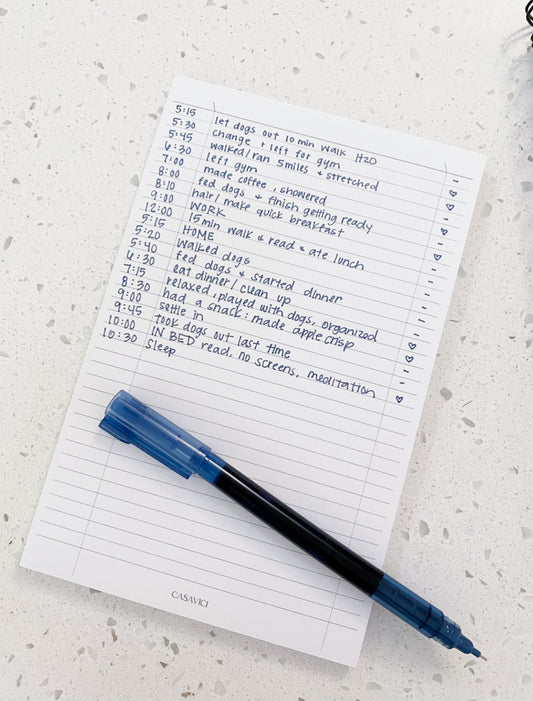 5:15 let dogs out 10 min walk H2O
5:30 change + left for gym
5:45 walked/ran 5miles + stretched
6:30 left gym
7:00 made coffee, showered
8:00 fed dogs + finish getting ready
8:10 hair/ make quick breakfast
9:00 WORK
12:00 15min walk + read + ate lunch
5:15 HOME
5:20 walked dogs
5:40 fed dogs + started dinner
6:30 eat dinner/clean up
7:15 relaxed, played with dogs, organized
8:30 had a snack: made apple crisp
9:00 settle in
9:45 took dogs out last time
10:00 IN BED read, no screens, meditation
10:30 sleep
CASAVICI